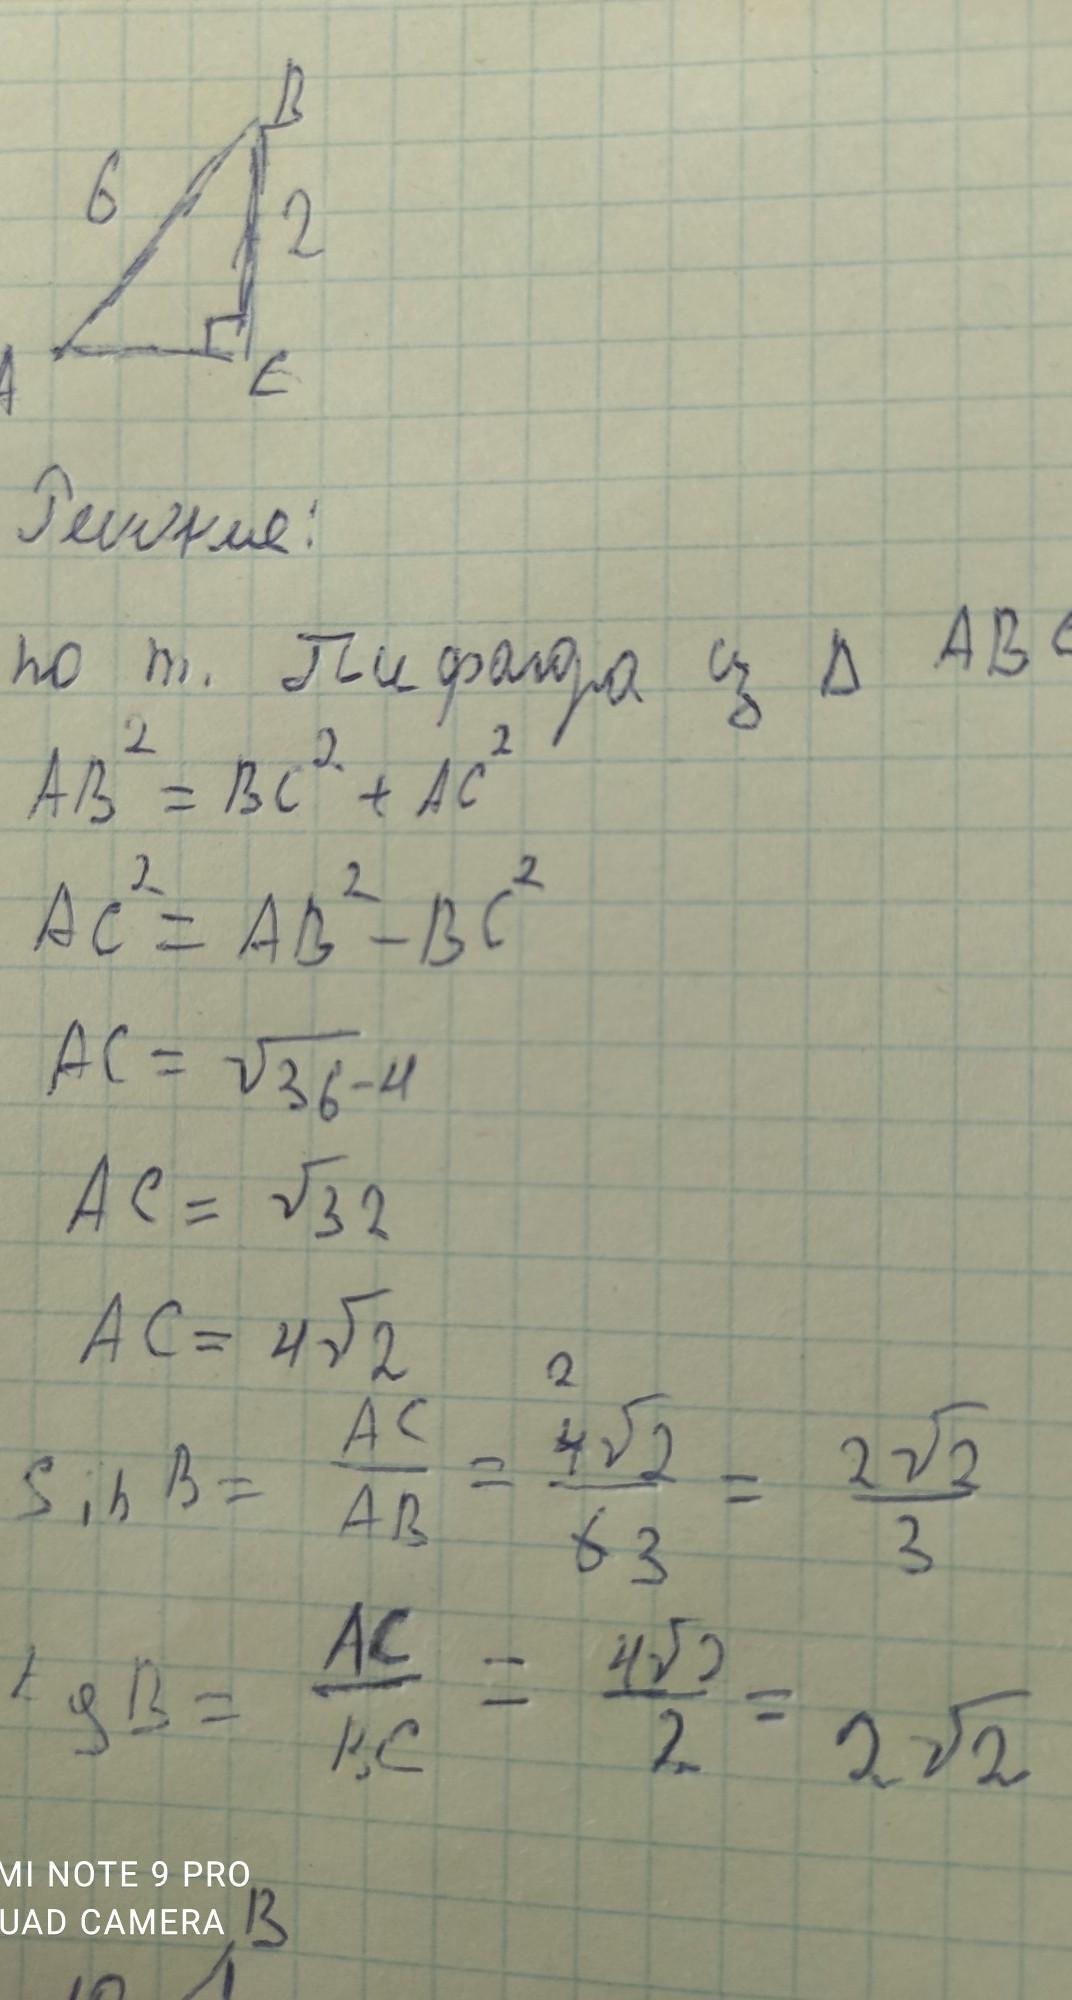 B
6
2
A
C
Решение:
по т. Пифагора из Δ ABC
AB² = BC² + AC²
AC² = AB² - BC²
AC = √36-4
AC = √32
AC = 4√2
2
Sin B = AC/AB = 4√2/6 3 = 2√2/3
tg B = AC/BC = 4√2/2 = 2√2
MI NOTE 9 PRO
UAD CAMERA
B
10